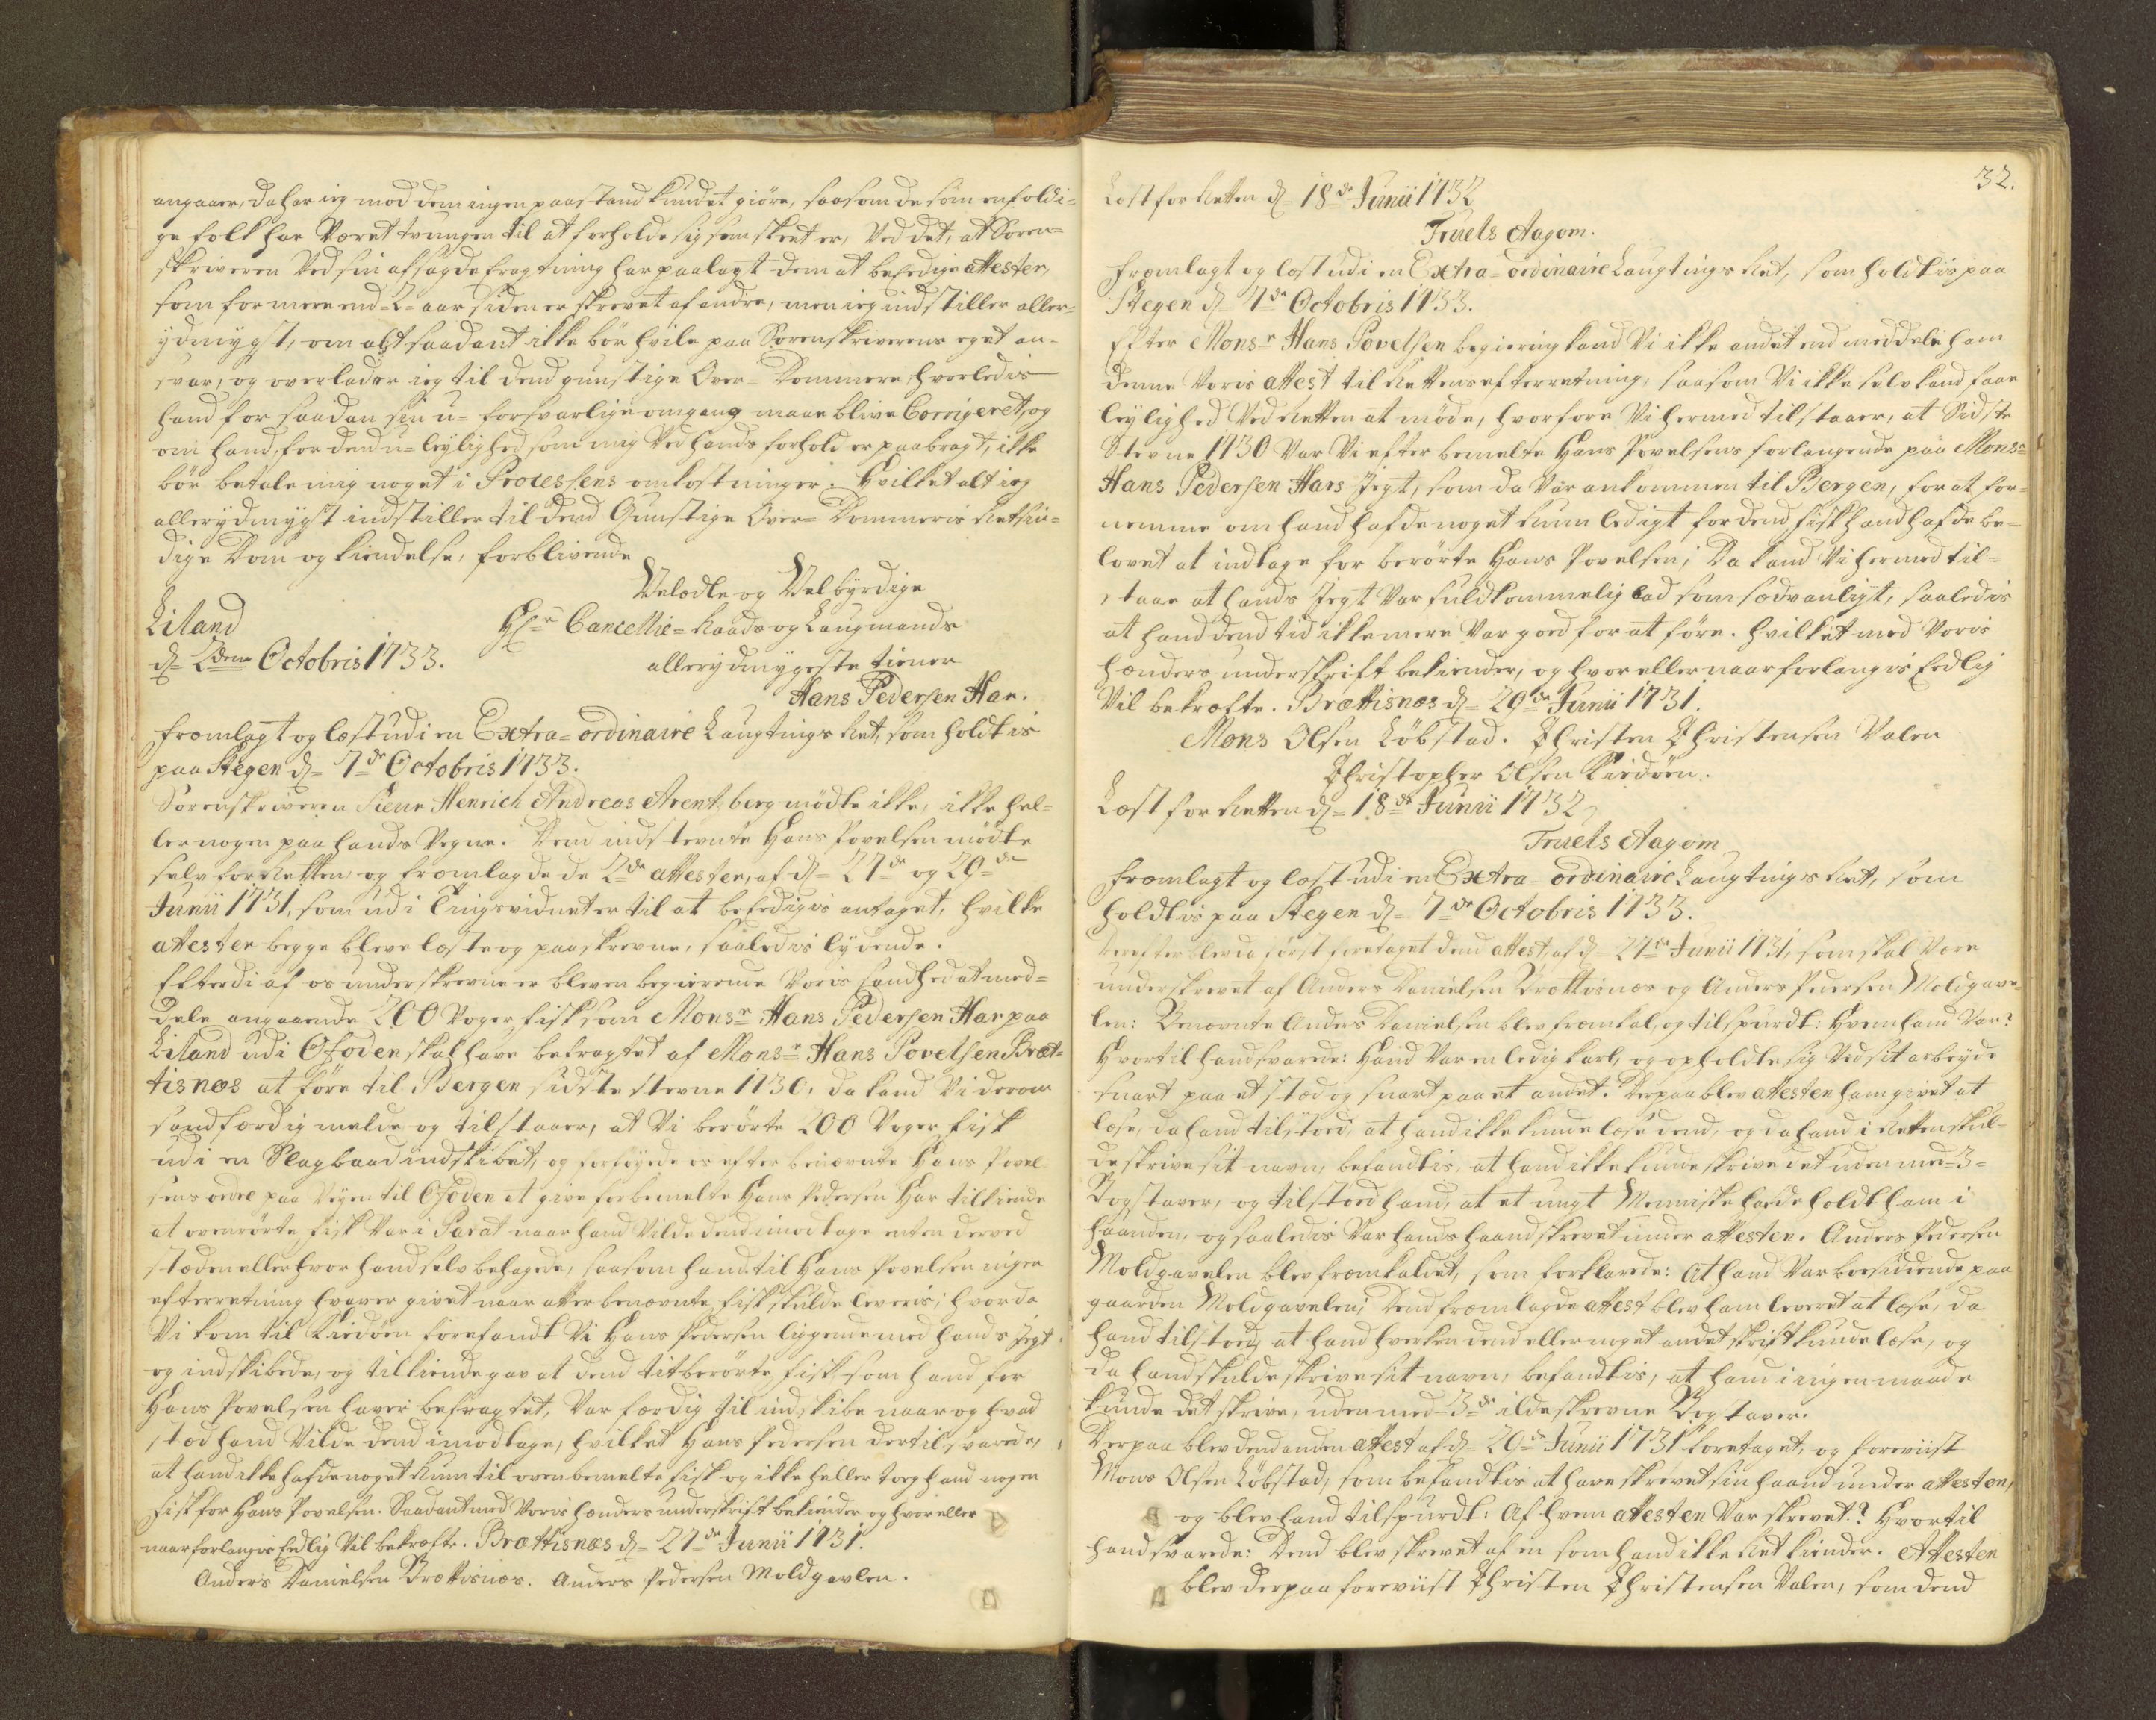 angaaer, da har ieg mod dem ingen paastand kundet giöre, saasom de som enfoldi-
ge folk har Været tvungen til at forholde sig som skeet er, Ved det, at Soren-
skriveren Ved sin afsagde fragtning har paalagt dem at beEedige attester,
som for meere end 2 aar siden er skrevet af andre, men ieg indstiller aller-
ydmygst, om alt saadant ikke bör hvile paa Sorenskriverens eget an-
svar, og overlader ieg til dend gunstige Over-Dommere, hvorledis
hand for saadan sin u-forsvarlige omgang maae blive Corrigeret, og
om hand, for dend u-leylighed som mig Ved hands forhold er paabragt, ikke
bör betale mig noget i Processens omkostninger. Hvilket alt ieg
allerydmygst indstiller til dend Gunstige Over-Dommeris Retfær-
dige Dom og kiendelse, forblivende
Velædle og Velbyrdige
Liland Hr Cancellie-Raads og Laugmands
d= 2den Octobris 1733. allerydmygeste tiener
Hans Pedersen Har.
fremlagt og læst udi en Extra-ordinaire Laugtings Ret, som holdtis
paa Stegen d= 7de Octobris 1733.
Sorenskriveren Sieur Henrich Andreas Arentsberg mödte ikke, ikke hel-
ler nogen paa hands Vegne. Dend indstevnte Hans Povelsen mödte
selv for Retten, og fremlagde de 2de attester, af d= 27de og 29de
Junii 1731, som udi Tingsvidnet er til at beEedigis antaget, hvilke
attester begge bleve læste og paaskrevne, saaledis lydende.
Efterdi af os underskrevne er bleven begierende Voris sandhed at med-
dele angaaende 200 Voger fisk som Monsr Hans Pedersen Har paa
Liland udi Ofoden skal have befragtet af Monsr Hans Povelsen Bræt-
tisnæs at före til Bergen sidste stevne 1730, da kand Vi derom
sandfærdig melde og tilstaaer, at Vi berörte 200 Voger fisk
udi en Slagbaad indskibet, og forföyede os efter benævnte Hans Povel-
sens ordre paa Veyen til Ofoden at give forbemelte Hans Pedersen Har tilkiende
at ovenrörte fisk Var i Parat naar hand Vilde dend imodtage enten derved
stæden eller hvor hand selv behagede, saasom hand til Hans Povelsen ingen
efterretning haver givet naar atter benævnte fisk skulde leveris; hvor da
Vi kom til Kiedöen forefandt Vi Hans Pedersen liggende med hands Jegt
og indskibede, og tilkiende gav at dend titberörte fisk som hand for
Hans Povelsen haver befragtet, Var færdig til indskibe naar og hvad
stæd hand Vilde dend imodtage, hvilket Hans Pedersen dertil svarede,
at hand ikke hafde noget Rum til ovenbemelte fisk og ikke heller tog hand nogen
fisk for Hans Povelsen. Saadant med Voris hænders underskrift bekiender og hvor eller
naar forlangis Eedlig Vil bekræfte. Brættisnæs d= 27de Junii 1731.
Anders Danielsen Brættisnæs. Anders Pedersen Moldgavlen.
32.
Læst for Retten d= 18de Junii 1732
Truels Aagom.
fremlagt og læst udi en Extra-ordinaire Laugtings Ret, som holdtis paa
Stegen d= 7de Octobris 1733.
Efter Monsr Hans Povelsen begiering kand Vi ikke andet end meddele ham
denne Voris attest til Rettens efterretning, saasom Vi ikke selv kand faae
leylighed Ved Retten at möde, hvorfore Vi hermed tilstaaer, at Sidste
Stevne 1730 Var Vi efter bemelte Hans Povelsens forlangende paa Monsr
Hans Pedersen Hars Jegt, som da Var ankommen til Bergen, for at for-
nemme om hand hafde noget Rum ledigt for dend fisk hand hafde be-
lovet at indtage for berörte Hans Povelsen; Da kand Vi hermed til-
staae at hands Jegt Var fuldkommelig lad som sædvanligt, saaledis
at hand dend tid ikke mere Var goed for at före. Hvilket med Voris
hænders underskrift bekiender, og hvor eller naar forlangis Eedlig
Vil bekræfte. Brættisnæs d= 29de Junii 1731.
Mons Olsen Löbstad. Christen Christensen Valen
Christopher Olsen Kiedöen.
Læst for Retten d= 18de Junii 1732
Truels Aagom
fremlagt og læst udi en Extra-ordinaire Laugtings Ret, som
holdtis paa Stegen d= 7de Octobris 1733.
Derefter blev da först foretaget dend attest, af d= 27de Junii 1731, som skal Være
underskrevet af Anders Danielsen Brættisnæs og Anders Pedersen Moldgave-
len: Benævnte Anders Danielsen blev fremkal, og tilspurdt: Hvem hand Var?
Hvortil hand svarede: Hand Var en ledig karl, og opholdte sig Ved sit arbeyde
snart paa et stæd og snart paa et andet. Derpaa blev attesten ham givet at
læse, da hand tilstoed, at hand ikke kunde læse dend, og da hand i Retten skul-
de skrive sit navn, befandtis, at hand ikke kunde skrive det uden med 3
Bogstaver, og tilstoed hand, at et ungt Menniske hafde holdt ham i
haanden, og saaledis Var hands haand skrevet under attesten. Anders Pedersen
Moldgavelen blev fremkaldet, som forklarede: At hand Var boesiddende paa
gaarden Moldgavelen; Dend fremlagde attest blev ham leveret at læse, da
hand tilstoed, at hand hverken dend eller noget andet skrift kunde læse, og
da hand skulde skrive sit navn, befandtis, at hand i ingen maade
kunde det skrive, uden med 3de ilde skrevne Bogstaver.
Derpaa blev dend anden attest af d= 29de Junii 1731 foretaget, og foreviist
Mons Olsen Löbstad, som befandtis at have skrevet sin haand under attesten,
og blev hand tilspurdt: Af hvem attesten Var skrevet? Hvortil
hand svarede: Dend blev skrevet af en som hand ikke Ret kiender. Attesten
blev derpaa foreviist Christen Christensen Valen, som dend